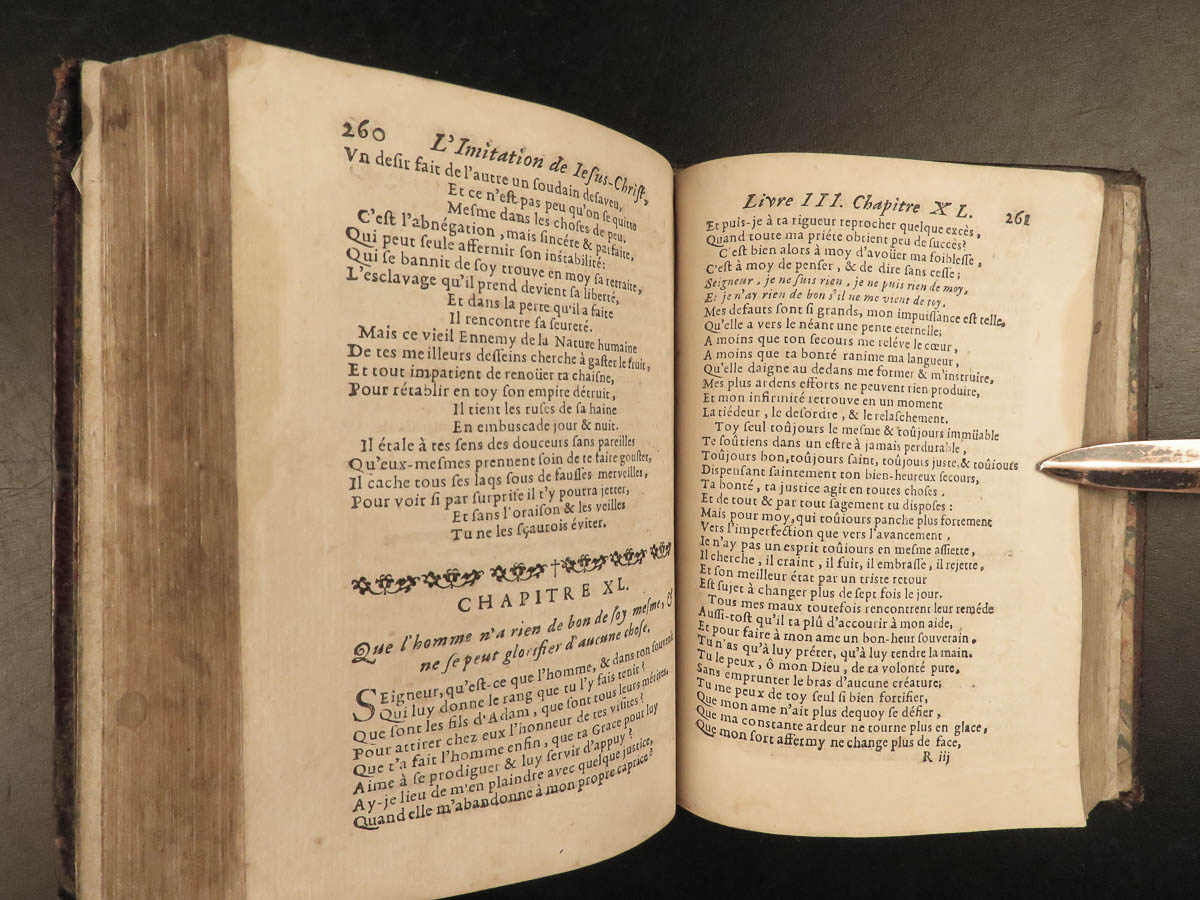 260 L'Imitation de Ieſus-Chriſt,
Vn deſir fait de l'autre un ſoudain deſaveu,
Et ce n'eſt pas peu qu'on ſe quitte
Meſme dans les choſes de peu.
C'eſt l'abnégation, mais ſincére & parfaite,
Qui peut ſeule affermir ſon inſtabilité:
Qui ſe bannit de ſoy trouve en moy ſa retraite,
L'esclavage qu'il prend devient ſa liberté,
Et dans la perte qu'il a faite
Il rencontre ſa ſeureté.
Mais ce vieil Ennemy de la Nature humaine
De tes meilleurs deſſeins cherche à gaſter le fruit,
Et tout impatient de renoüer ta chaiſne,
Pour rétablir en toy ſon empire détruit,
Il tient les ruſes de ſa haine
En embuſcade jour & nuit.
Il étale à tes ſens des douceurs ſans pareilles
Qu'eux-meſmes prennent ſoin de te faire gouſter,
Il cache tous ſes laqs ſous de fauſſes merveilles,
Pour voir ſi par ſurpriſe il t'y pourra jetter,
Et ſans l'oraiſon & les veilles
Tu ne les ſçaurois éviter.
CHAPITRE XL.
Que l'homme n'a rien de bon de ſoy meſme, &
ne ſe peut glorifier d'aucune choſe.
SEigneur, qu'eſt-ce que l'homme, & dans ton ſouvenir
Qui luy donne le rang que tu l'y fais tenir?
Que ſont les fils d'Adam, que ſont tous leurs mérites,
Pour attirer chez eux l'honneur de tes viſites?
Que t'a fait l'homme enfin, que ta Grace pour luy
Aime à ſe prodiguer & luy ſervir d'appuy?
Ay-je lieu de m'en plaindre avec quelque juſtice,
Quand elle m'abandonne à mon propre caprice?
Livre III. Chapitre XL. 261
Et puis-je à ta rigueur reprocher quelque excès,
Quand toute ma priére obtient peu de ſuccès?
C'eſt bien alors à moy d'avoüer ma foibleſſe,
C'eſt à moy de penſer, & de dire ſans ceſſe;
Seigneur, je ne ſuis rien, je ne puis rien de moy,
Et je n'ay rien de bon s'il ne me vient de toy.
Mes defauts ſont ſi grands, mon impuiſſance eſt telle,
Qu'elle a vers le néant une pente éternelle;
A moins que ton ſecours me reléve le cœur,
A moins que ta bonté ranime ma langueur,
Qu'elle daigne au dedans me former & m'inſtruire,
Mes plus ardens efforts ne peuvent rien produire,
Et mon infirmité retrouve en un moment
La tiédeur, le deſordre, & le relaſchement.
Toy ſeul toûjours le meſme & toûjours immüable
Te ſoûtiens dans un eſtre à jamais perdurable,
Toûjours bon, toûjours ſaint, toûjours juſte, & toûiours
Diſpenſant ſaintement ton bien-heureux ſecours,
Ta bonté, ta juſtice agit en toutes choſes,
Et de tout & par tout ſagement tu diſpoſes:
Mais pour moy, qui toûiours panche plus fortement
Vers l'imperfection que vers l'avancement,
Ie n'ay pas un eſprit toûiours en meſme aſſiette,
Il cherche, il craint, il fuit, il embraſſe, il rejette,
Et ſon meilleur état par un triſte retour
Eſt ſujet à changer plus de ſept fois le jour.
Tous mes maux toutefois rencontrent leur reméde
Auſſi-toſt qu'il t'a plû d'accourir à mon aide,
Et pour faire à mon ame un bon-heur ſouverain,
Tu n'as qu'à luy préter, qu'à luy tendre la main.
Tu le peux, ô mon Dieu, de ta volonté pure,
Sans emprunter le bras d'aucune créature;
Tu me peux de toy ſeul ſi bien fortifier,
Que mon ame n'ait plus dequoy ſe défier,
Que ma conſtante ardeur ne tourne plus en glace,
Que mon ſort affermy ne change plus de face,
R iij